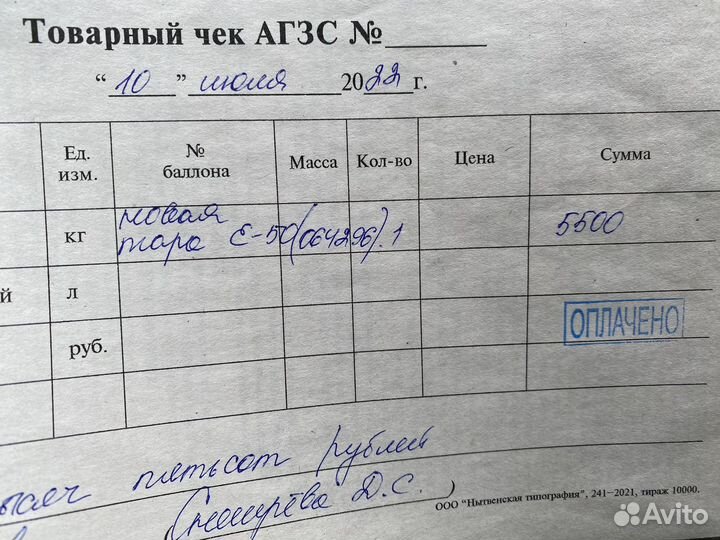 Товарный чек АГЗС №
“ 10 ” июля 2022 г.
Ед. изм. № баллона Масса Кол-во Цена Сумма
кг новая тара Е-50 (064296). 1 5500
й л
руб. ОПЛАЧЕНО
ысяч пятьсот рублей
Д.С. )
ООО “Нытвенская типография”, 241–2021, тираж 10000.
Avito